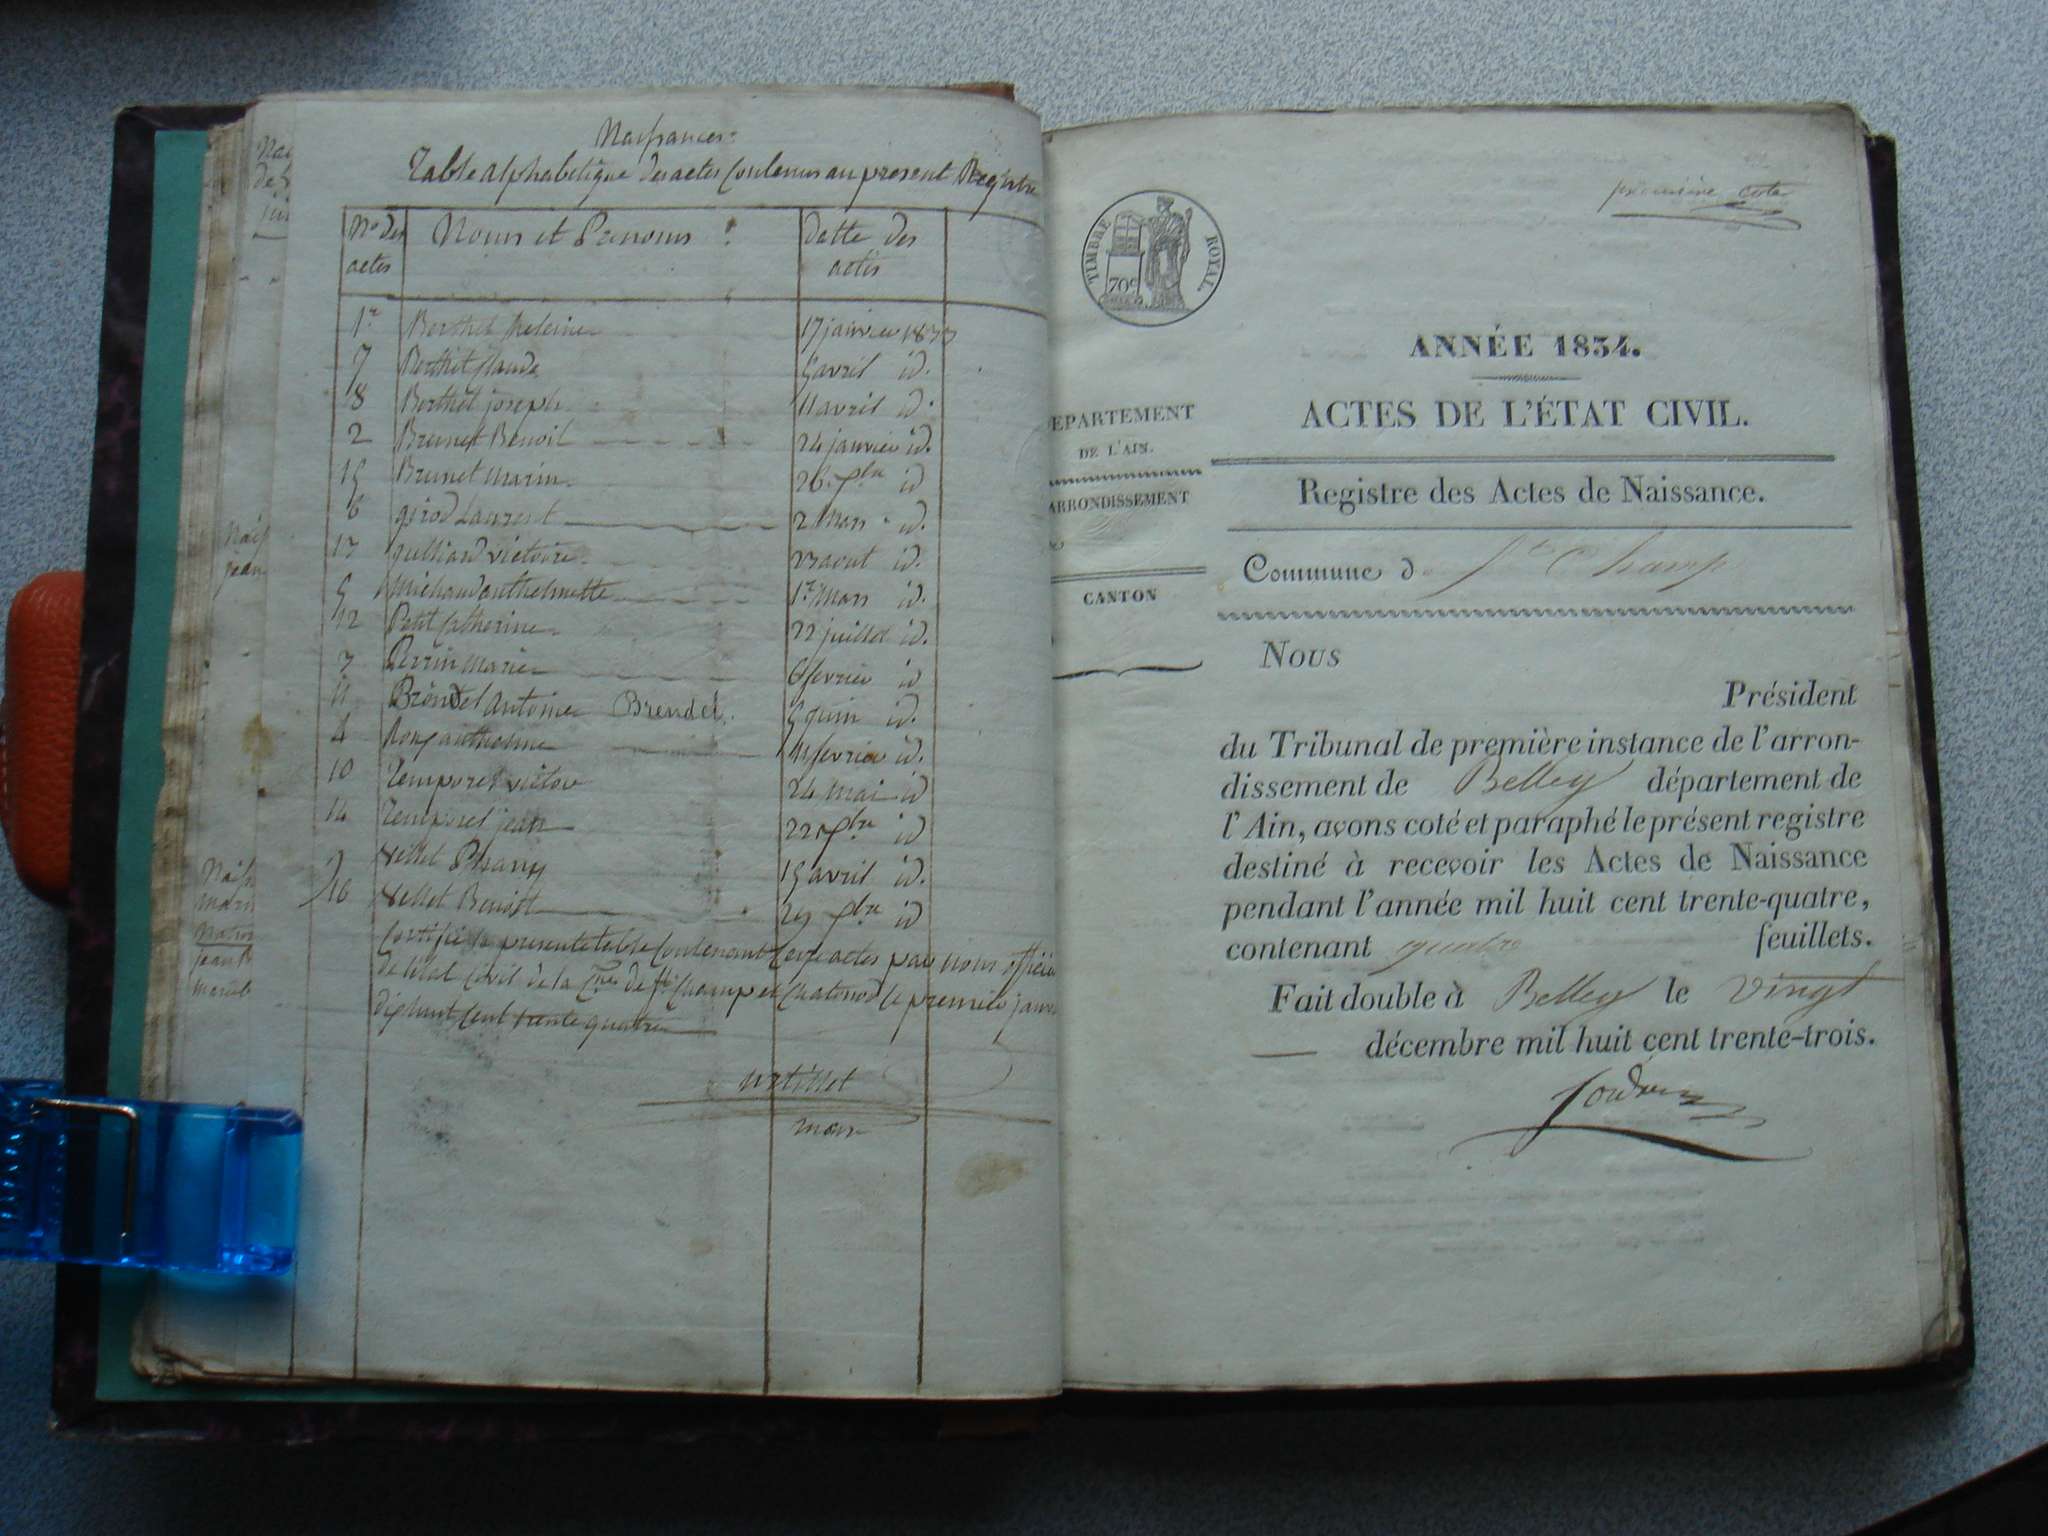 Naissances
Table alphabetique des actes Contenus au present Registre
No des actes
Noms et Prenoms
datte des actes
1er Berthet 17 janvier 1833
7 Berthet Claude 5 avril id.
8 Berthet joseph 11 avril id.
2 Brunet Benoit 24 janvier id.
15 Brunet Marin 26 9bre id
6 girod Laurent 2 Mars id.
13 guilliard victoire 23 aout id.
5 Michaud anthelmette 1er Mars id.
12 Petit Catherine 22 juillet id.
3 Perrin Marie 6 fevrier id
11 Brondel Antoine Brendel. 5 juin id.
4 Rony anthelme 14 fevrier id.
10 Temporel victor 24 mai id
14 Temporel jean 22 9bre id
9 vellet 15 avril id.
16 vellet Benoit 29 9bre id
Certifié la presente table Contenant Seize actes par nous officier
de létat Civil de la Cne de St Champ et Chatonod le premier janv
dix huit Cent trente quatre
maire
première cote
TIMBRE ROYAL
70c
ANNÉE 1834.
ACTES DE L'ÉTAT CIVIL.
EPARTEMENT
DE L'AIN.
ARRONDISSEMENT
CANTON
Registre des Actes de Naissance.
Commune d St Champ
Nous
Président
du Tribunal de première instance de l'arron-
dissement de Belley département de
l'Ain, avons coté et paraphé le présent registre
destiné à recevoir les Actes de Naissance
pendant l'année mil huit cent trente-quatre,
contenant quatre feuillets.
Fait double à Belley le vingt
décembre mil huit cent trente-trois.